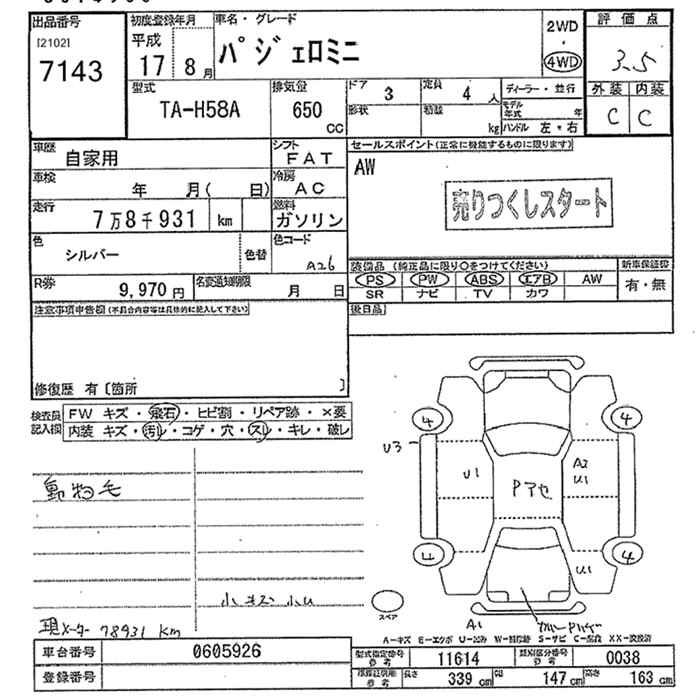 出品番号 初度登録年月 車名・グレード 評価点
[2102] 平成 2WD
7143 17 8月 パジェロミニ ・ 3.5
4WD
型式 排気量 ドア 3 定員 4 人 ディーラー・並行 外装 内装
TA-H58A 650 CC 形状 積載 kg モデル年式 年 C C
ハンドル 左・右
車歴 自家用 シフト FAT セールスポイント(正常に機能するものに限ります)
車検 年 月( 日) 冷房 AC AW
走行 7万8千931 km 燃料 ガソリン 売りつくしスタート
色 シルバー 色替 色コード A26
装備品 (純正品に限り○をつけてください) 新車保証書
R券 9,970円 名変通知期限 月 日 PS PW ABS エアB AW 有・無
SR ナビ TV カワ
注意事項申告欄(不具合内容等は具体的に記入して下さい) 後日品
修復歴 有〔箇所 〕
検査員 FW キズ・飛石・ヒビ割・リペア跡・×要
記入欄 内装 キズ・汚レ・コゲ・穴・スレ・キレ・破レ
4 4
U3
U1 Pアセ A2
U1
動物毛
4 4
U1
小キズ 小U
スペア A1
現メーター 78931 km
A-キズ E-エクボ U-凹み S-サビ C-腐蝕
車台番号 0605926 型式指定番号 参考 11614 類別区分番号 参考 0038
登録番号 参考 長さ 339 cm 幅 147 cm 高さ 163 cm